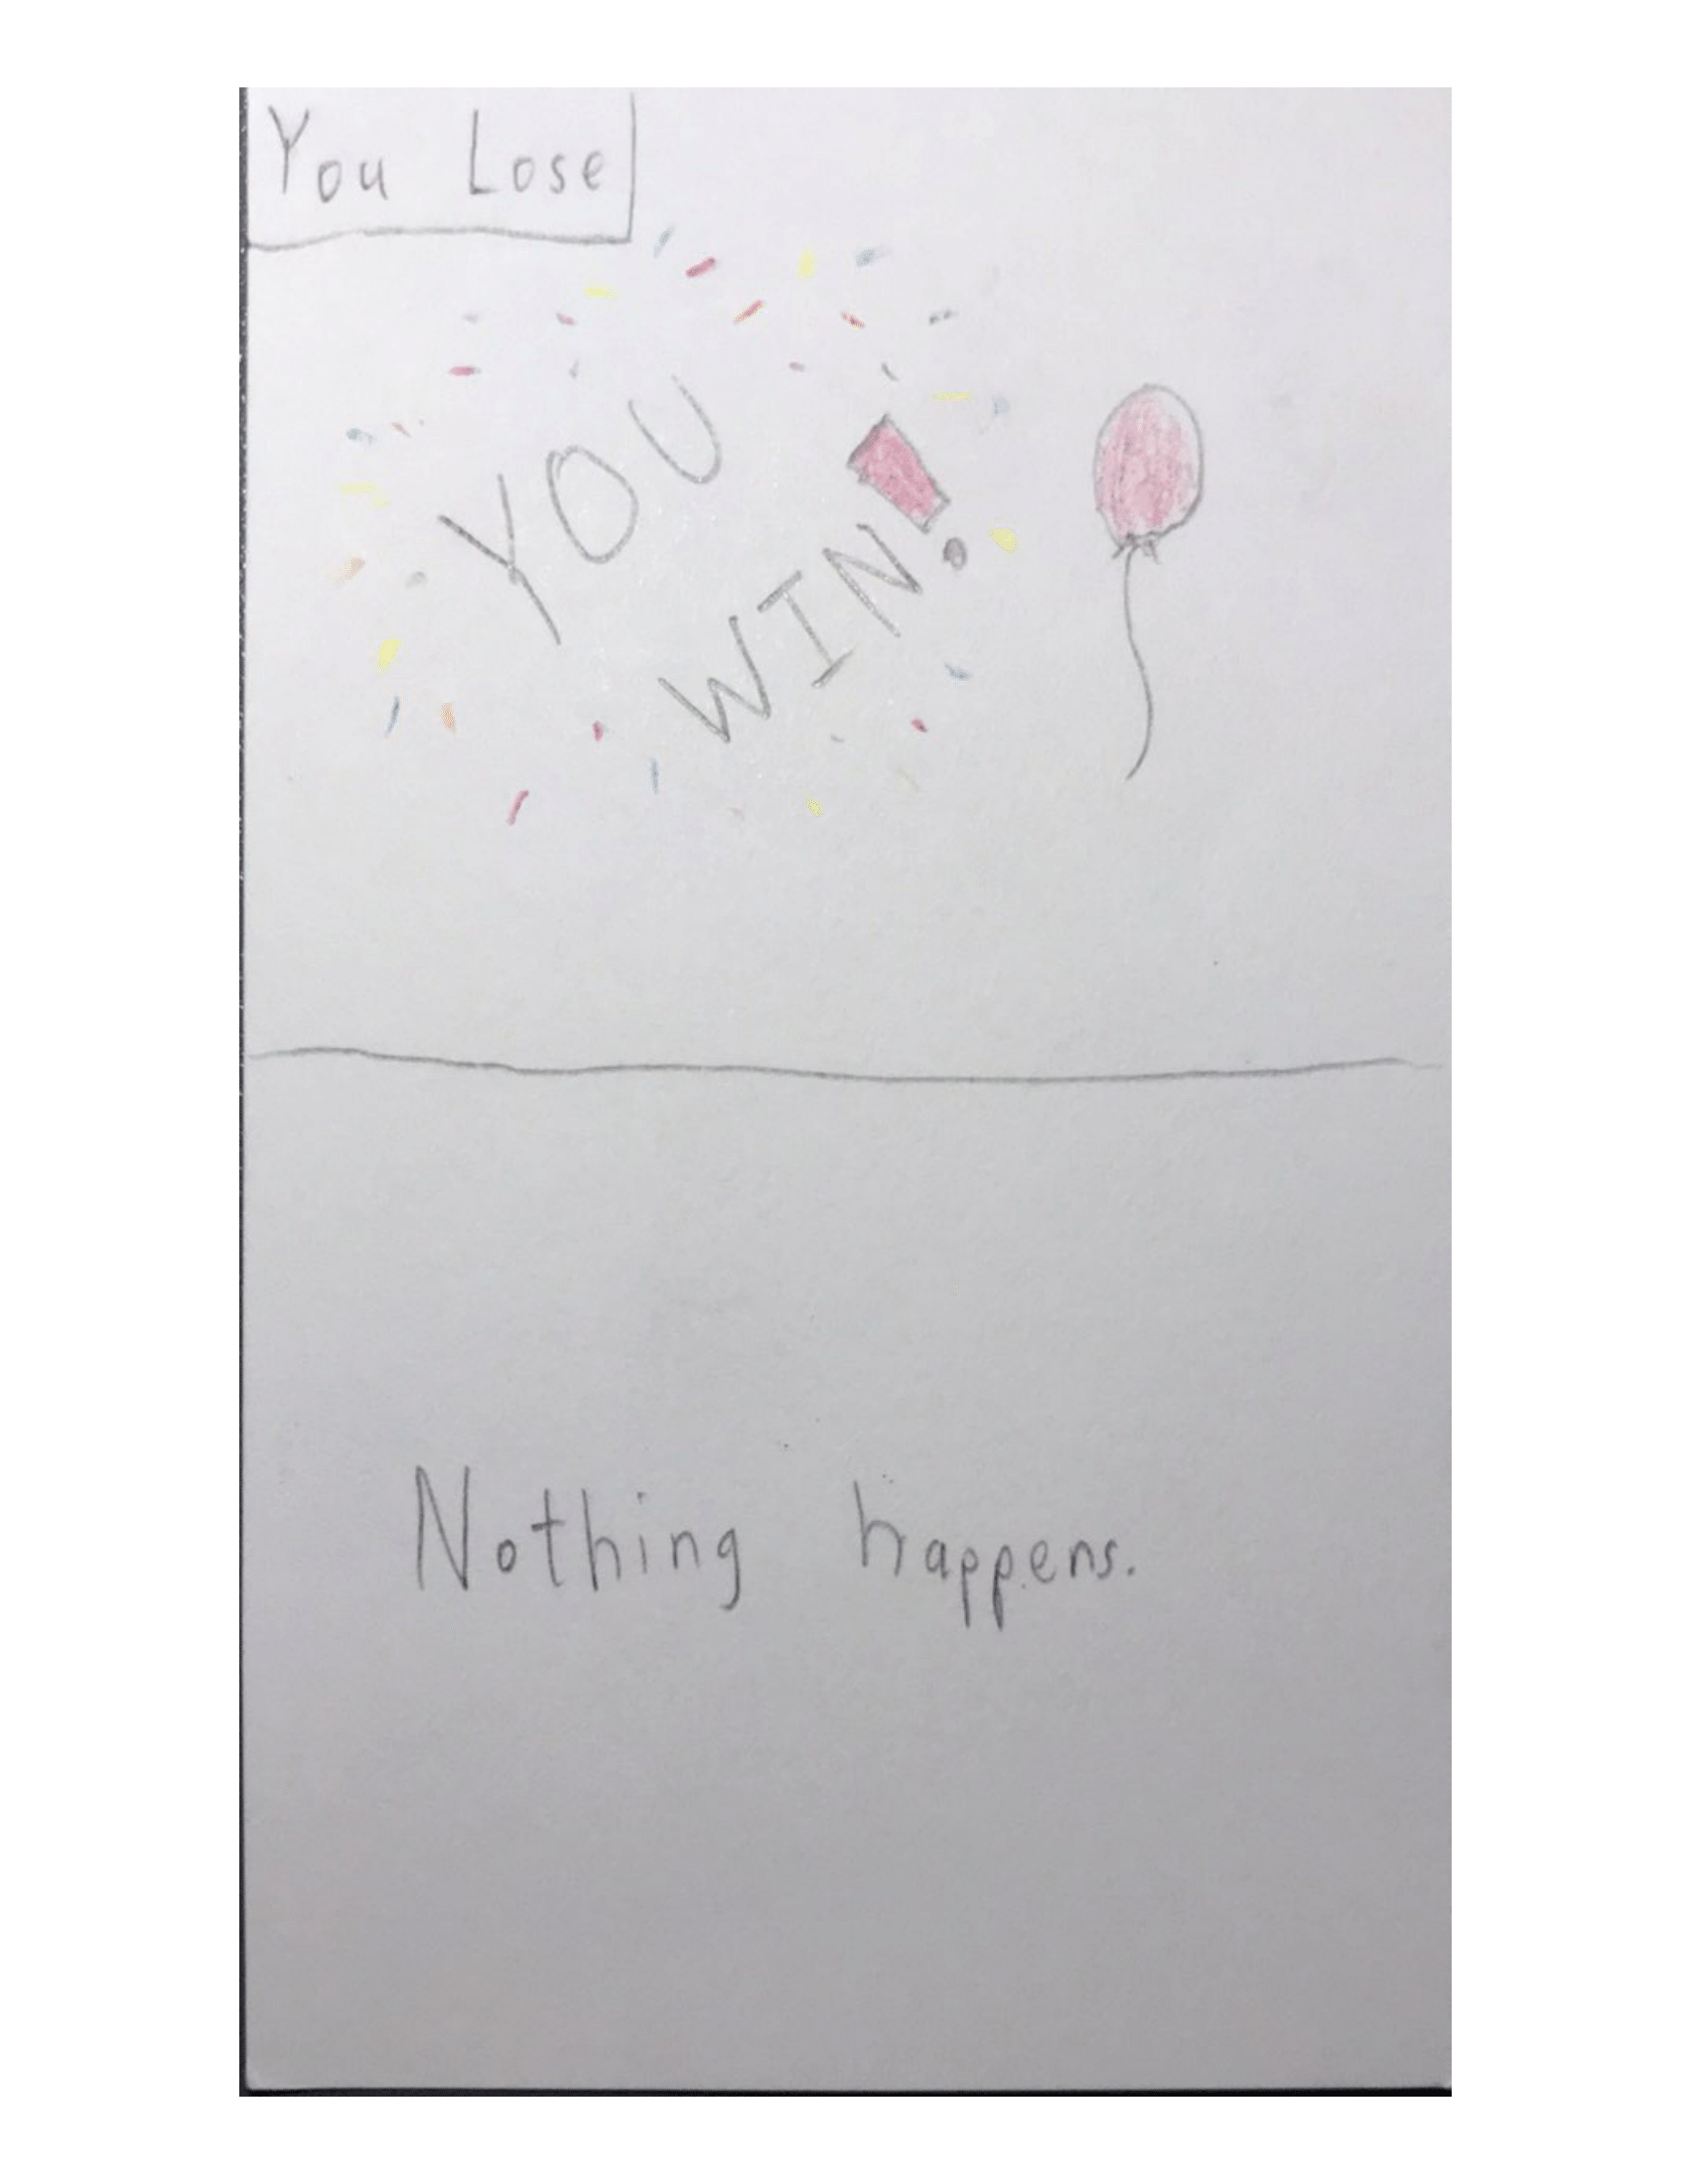 You Lose
YOU
WIN!
Nothing happens.